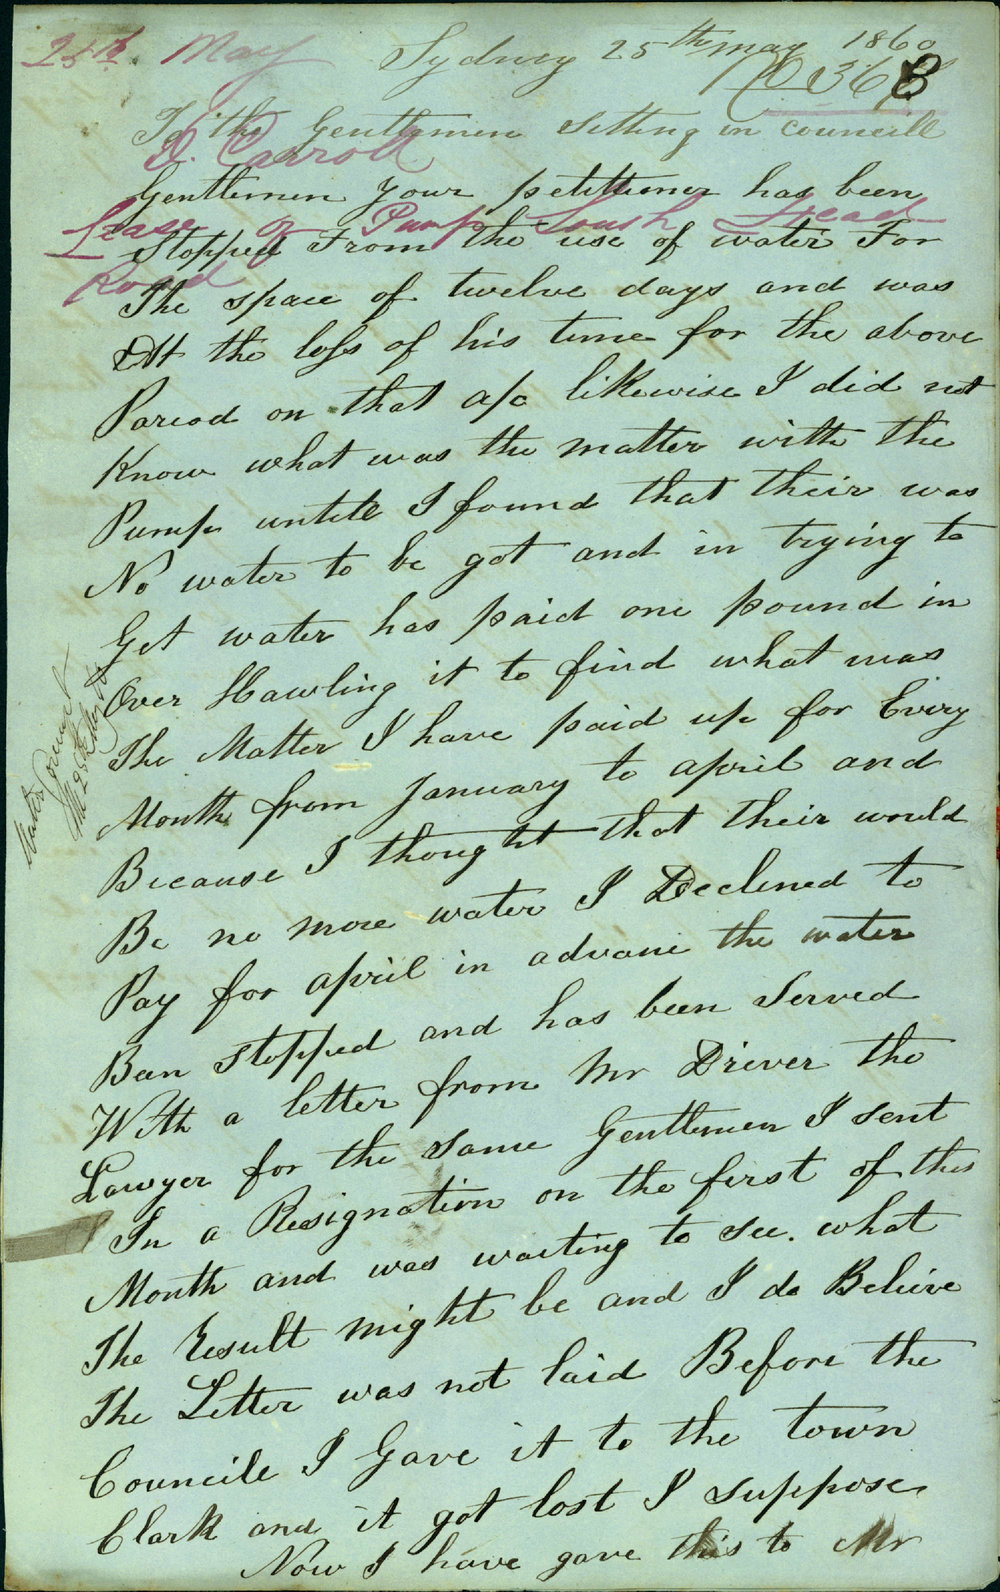 25th May
Sydney 25th may 1860
No 368
To the Gentlemen setting in councill
D. Carroll
Gentlemen your petittioner has been
Lease of Pump South Head
Stopped From the use of water For
Road
The space of twelve days and was
At the loss of his time for the above
Pareod on that a/c likewise I did not
Know what was the matter with the
Pump untile I found that their was
No water to be got and in trying to
Get water has paid one pound in
Over Hawling it to find what was
The Matter I have paid up for Every
Month from January to april and
Because I thought that their would
Be no more water I Declined to
Pay for april in advance the water
Been stopped and has been Served
With a letter from Mr Driever the
Lawyer for the same Gentlemen I sent
In a Resignation on the first of this
Month and was waiting to see. what
The Result might be and I do Beleive
The Letter was not laid Before the
Councile I Gave it to the town
Clark and it got lost I suppose
Now I have gave this to Mr
Water
25 May